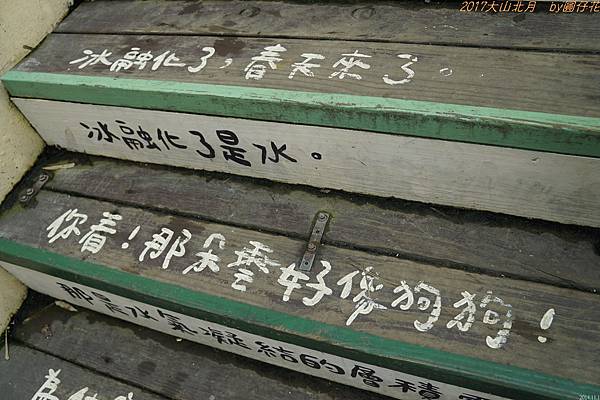 2017大山北月 by圓仔花
冰融化了，春天來了。
冰融化了是水。
你看！那朵雲好像狗狗！
那是水氣凝結的層積